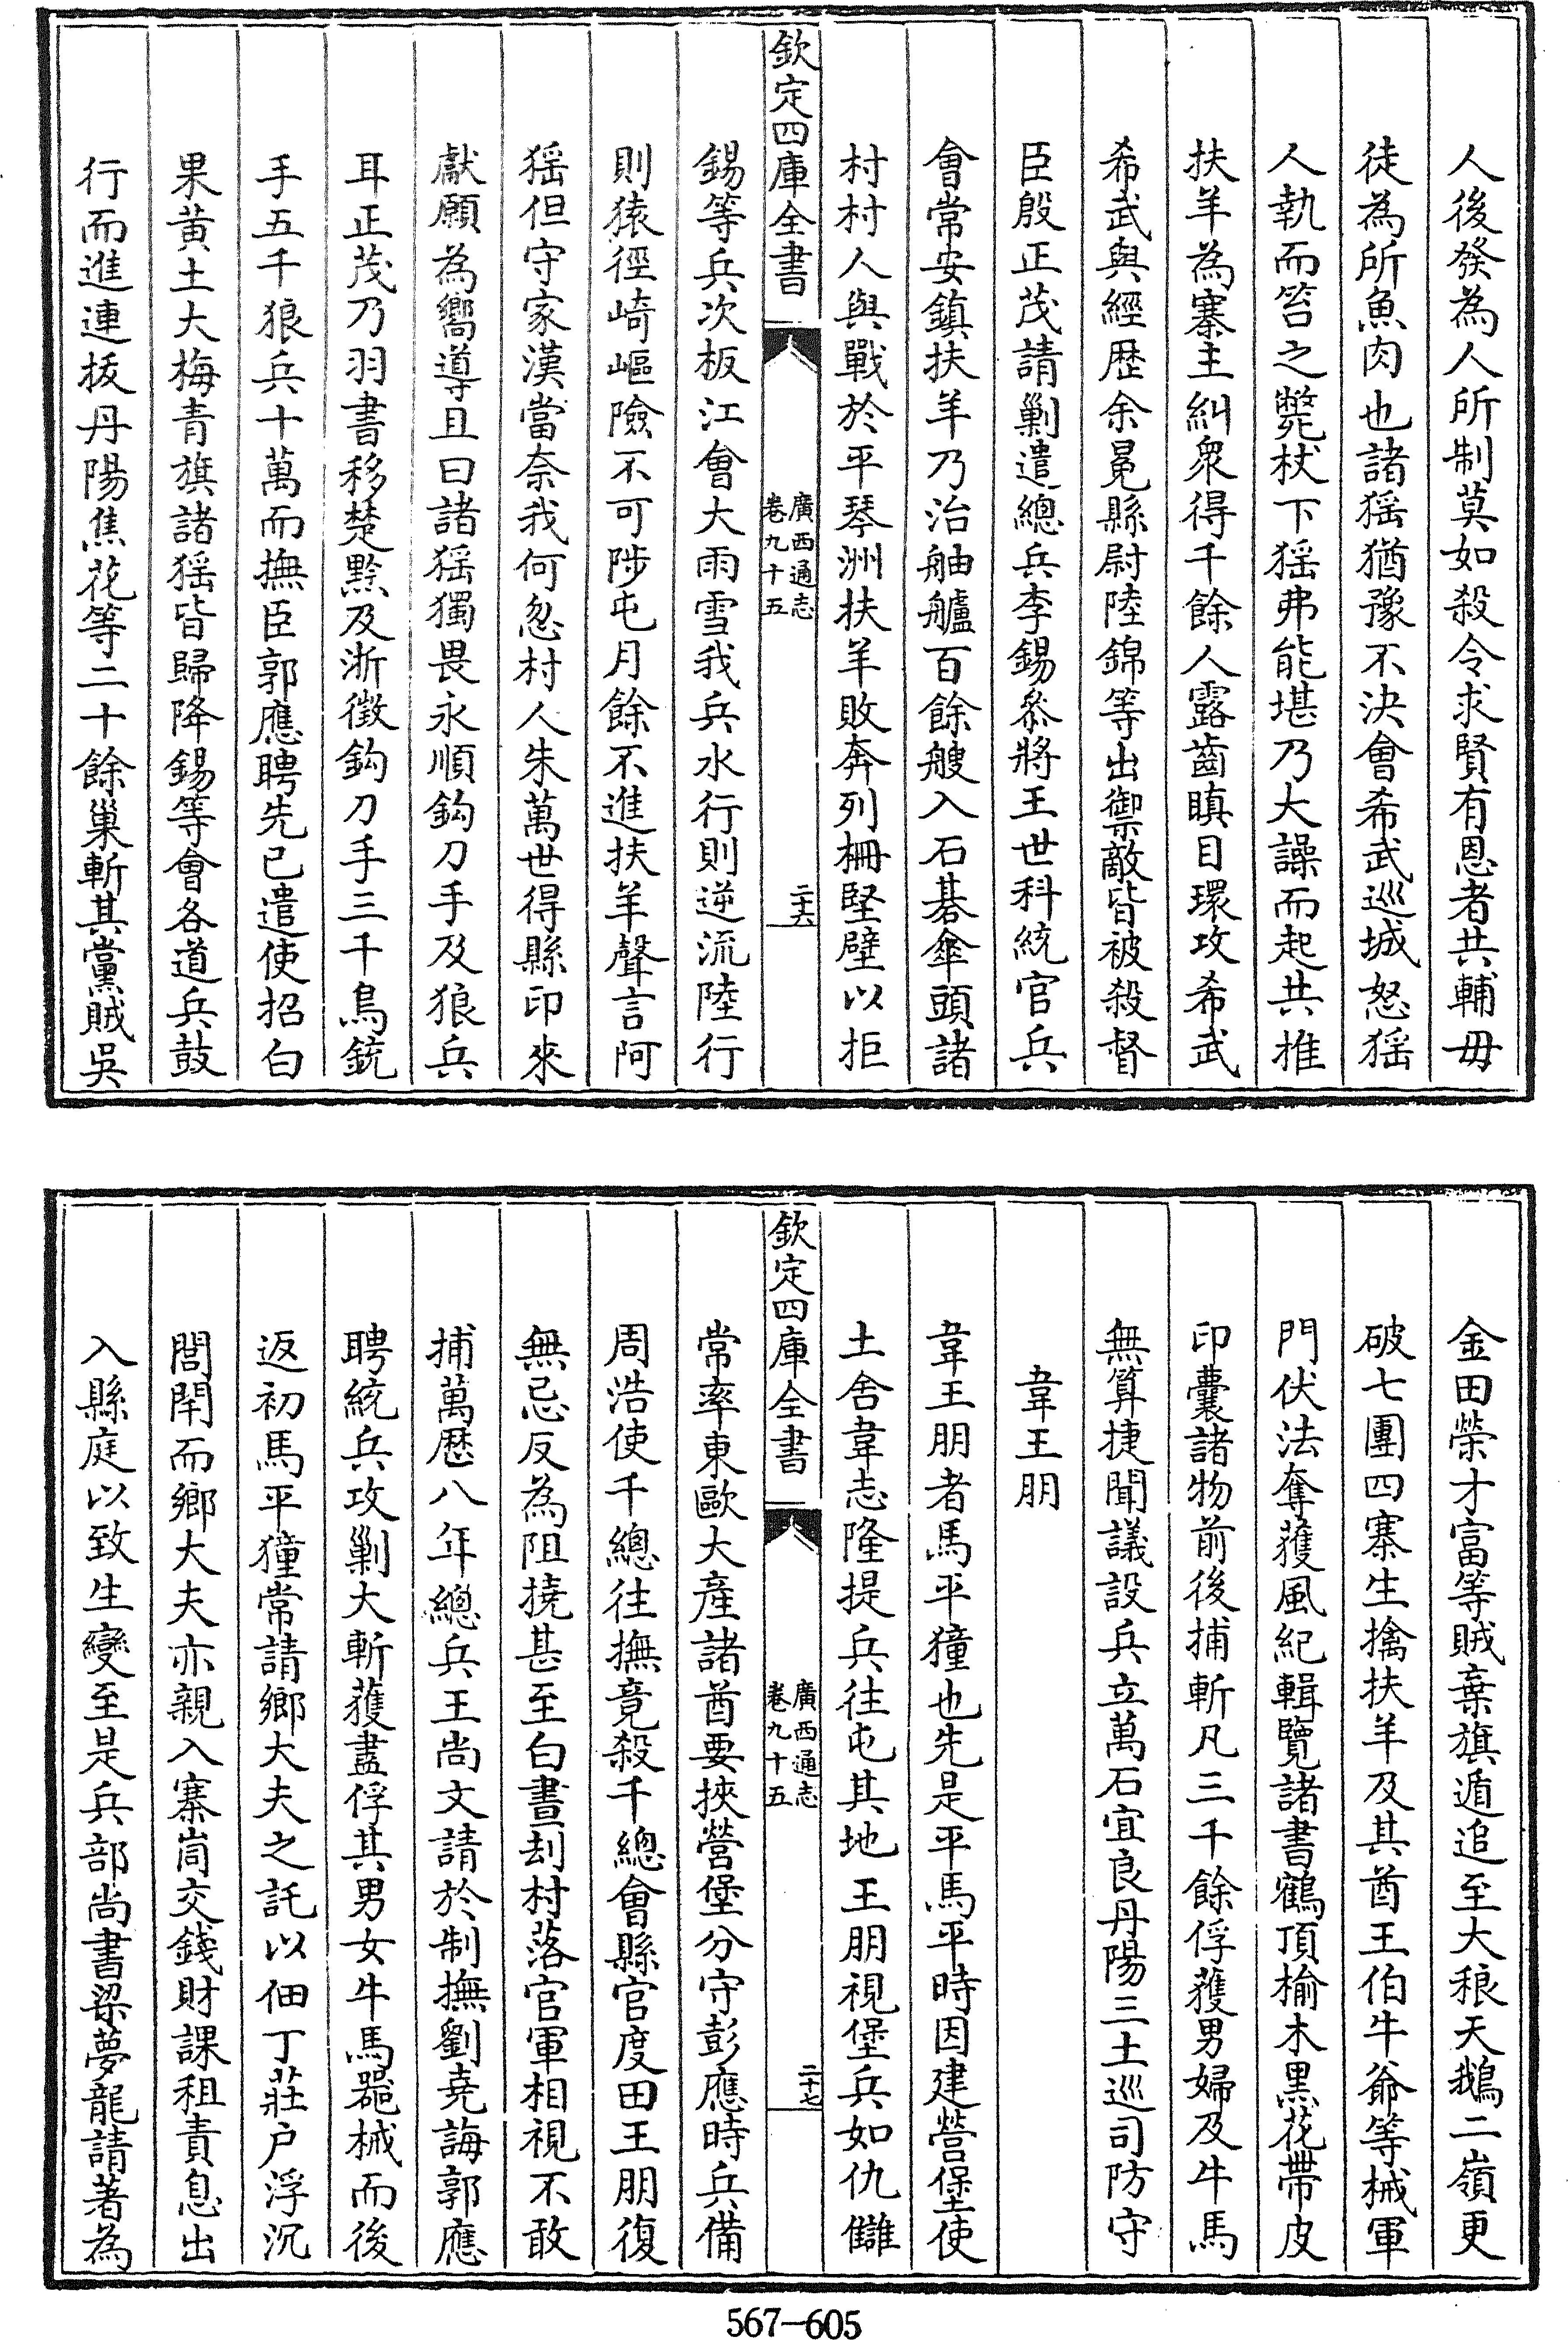 人後發為人所制莫如殺令求賢有恩者共輔毋
徒為所魚肉也諸猺猶豫不決會希武巡城怒猺
人執而笞之斃杖下猺弗能堪乃大譟而起共推
扶羊為寨主糾衆得千餘人露齒瞋目環攻希武
希武與經歴余冕縣尉陸錦等出禦敵皆被殺督
臣殷正茂請剿遣總兵李錫叅將王世科統官兵
會常安鎮扶羊乃治舳艫百餘艘入石碁傘頭諸
村村人與戰於平琴洲扶羊敗奔列柵堅壁以拒
欽定四庫全書
廣西通志
卷九十五
二十六
錫等兵次板江會大雨雪我兵水行則逆流陸行
則猿徑崎嶇險不可陟屯月餘不進扶羊聲言阿
猺但守家漢當奈我何忽村人朱萬世得縣印來
獻願為嚮導且曰諸猺獨畏永順鈎刀手及狼兵
耳正茂乃羽書移楚黔及浙徵鈎刀手三千鳥銃
手五千狼兵十萬而撫臣郭應聘先已遣使招白
果黄土大梅青旗諸猺皆歸降錫等會各道兵鼓
行而進連拔丹陽焦花等二十餘巢斬其黨賊吳
金田榮才富等賊棄旗遁追至大稂天鵝二嶺更
破七團四寨生擒扶羊及其酋王伯牛爺等械軍
門伏法奪獲風紀輯覽諸書鶴頂榆木黑花帶皮
印囊諸物前後捕斬凡三千餘俘獲男婦及牛馬
無算捷聞議設兵立萬石宜良丹陽三土巡司防守
韋王朋
韋王朋者馬平獞也先是平馬平時因建營堡使
土舍韋志隆提兵往屯其地王朋視堡兵如仇讎
欽定四庫全書
廣西通志
卷九十五
二十七
常率東歐大產諸酋要挾營堡分守彭應時兵備
周浩使千總往撫竟殺千總會縣官度田王朋復
無忌反為阻撓甚至白晝刦村落官軍相視不敢
捕萬歴八年總兵王尚文請於制撫劉堯誨郭應
聘統兵攻剿大斬獲盡俘其男女牛馬噐械而後
返初馬平獞常請鄉大夫之託以佃丁莊戶浮沉
閭閈而鄉大夫亦親入寨崗交錢財課租責息出
入縣庭以致生變至是兵部尚書梁夢龍請著為
567-605